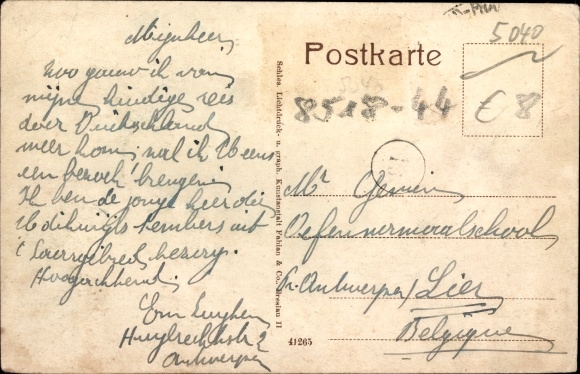 Mijnheer,
Zoo gauw ik van
mijne huidige reis
door Duitschland
weer kom, zal ik U eens
een bezoek brengen.
Ik ben de jonge heer die
U dikwijls timbers uit
't Saargebied bezorg.
Hoogachtend.
Em
2
Antwerpen
Postkarte
5040
8518-44
€ 8
Mr
Oefennormaalschool
Antwerpen / Lier
Belgique
Schles. Lichtdruck- u. graph. Kunstanstalt Fabian & Co., Breslau II
41265